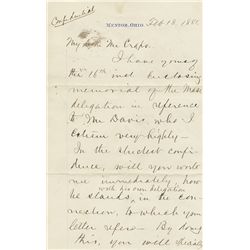 Confidential
MENTOR, OHIO. Feb 18, 1880
My dear Mr Crapo.
I have yours of
the 16th inst enclosing
memorial of the Mass
delegation in reference
to Mr Davis, who I
esteem very highly—
In the strictest confi-
dence, will you write
me immediately, how
with his own delegation
he stands, in the con-
nection, to which your
letter refers— By doing
this, you will greatly